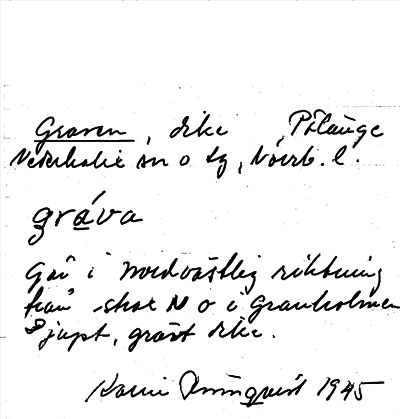 Graven, dike Pålänge
Nederkalix sn o tg, Norrb. l.
gráva
Går i nordvästlig riktning
från N o i Granholmen
Djupt, grävt dike.
1945